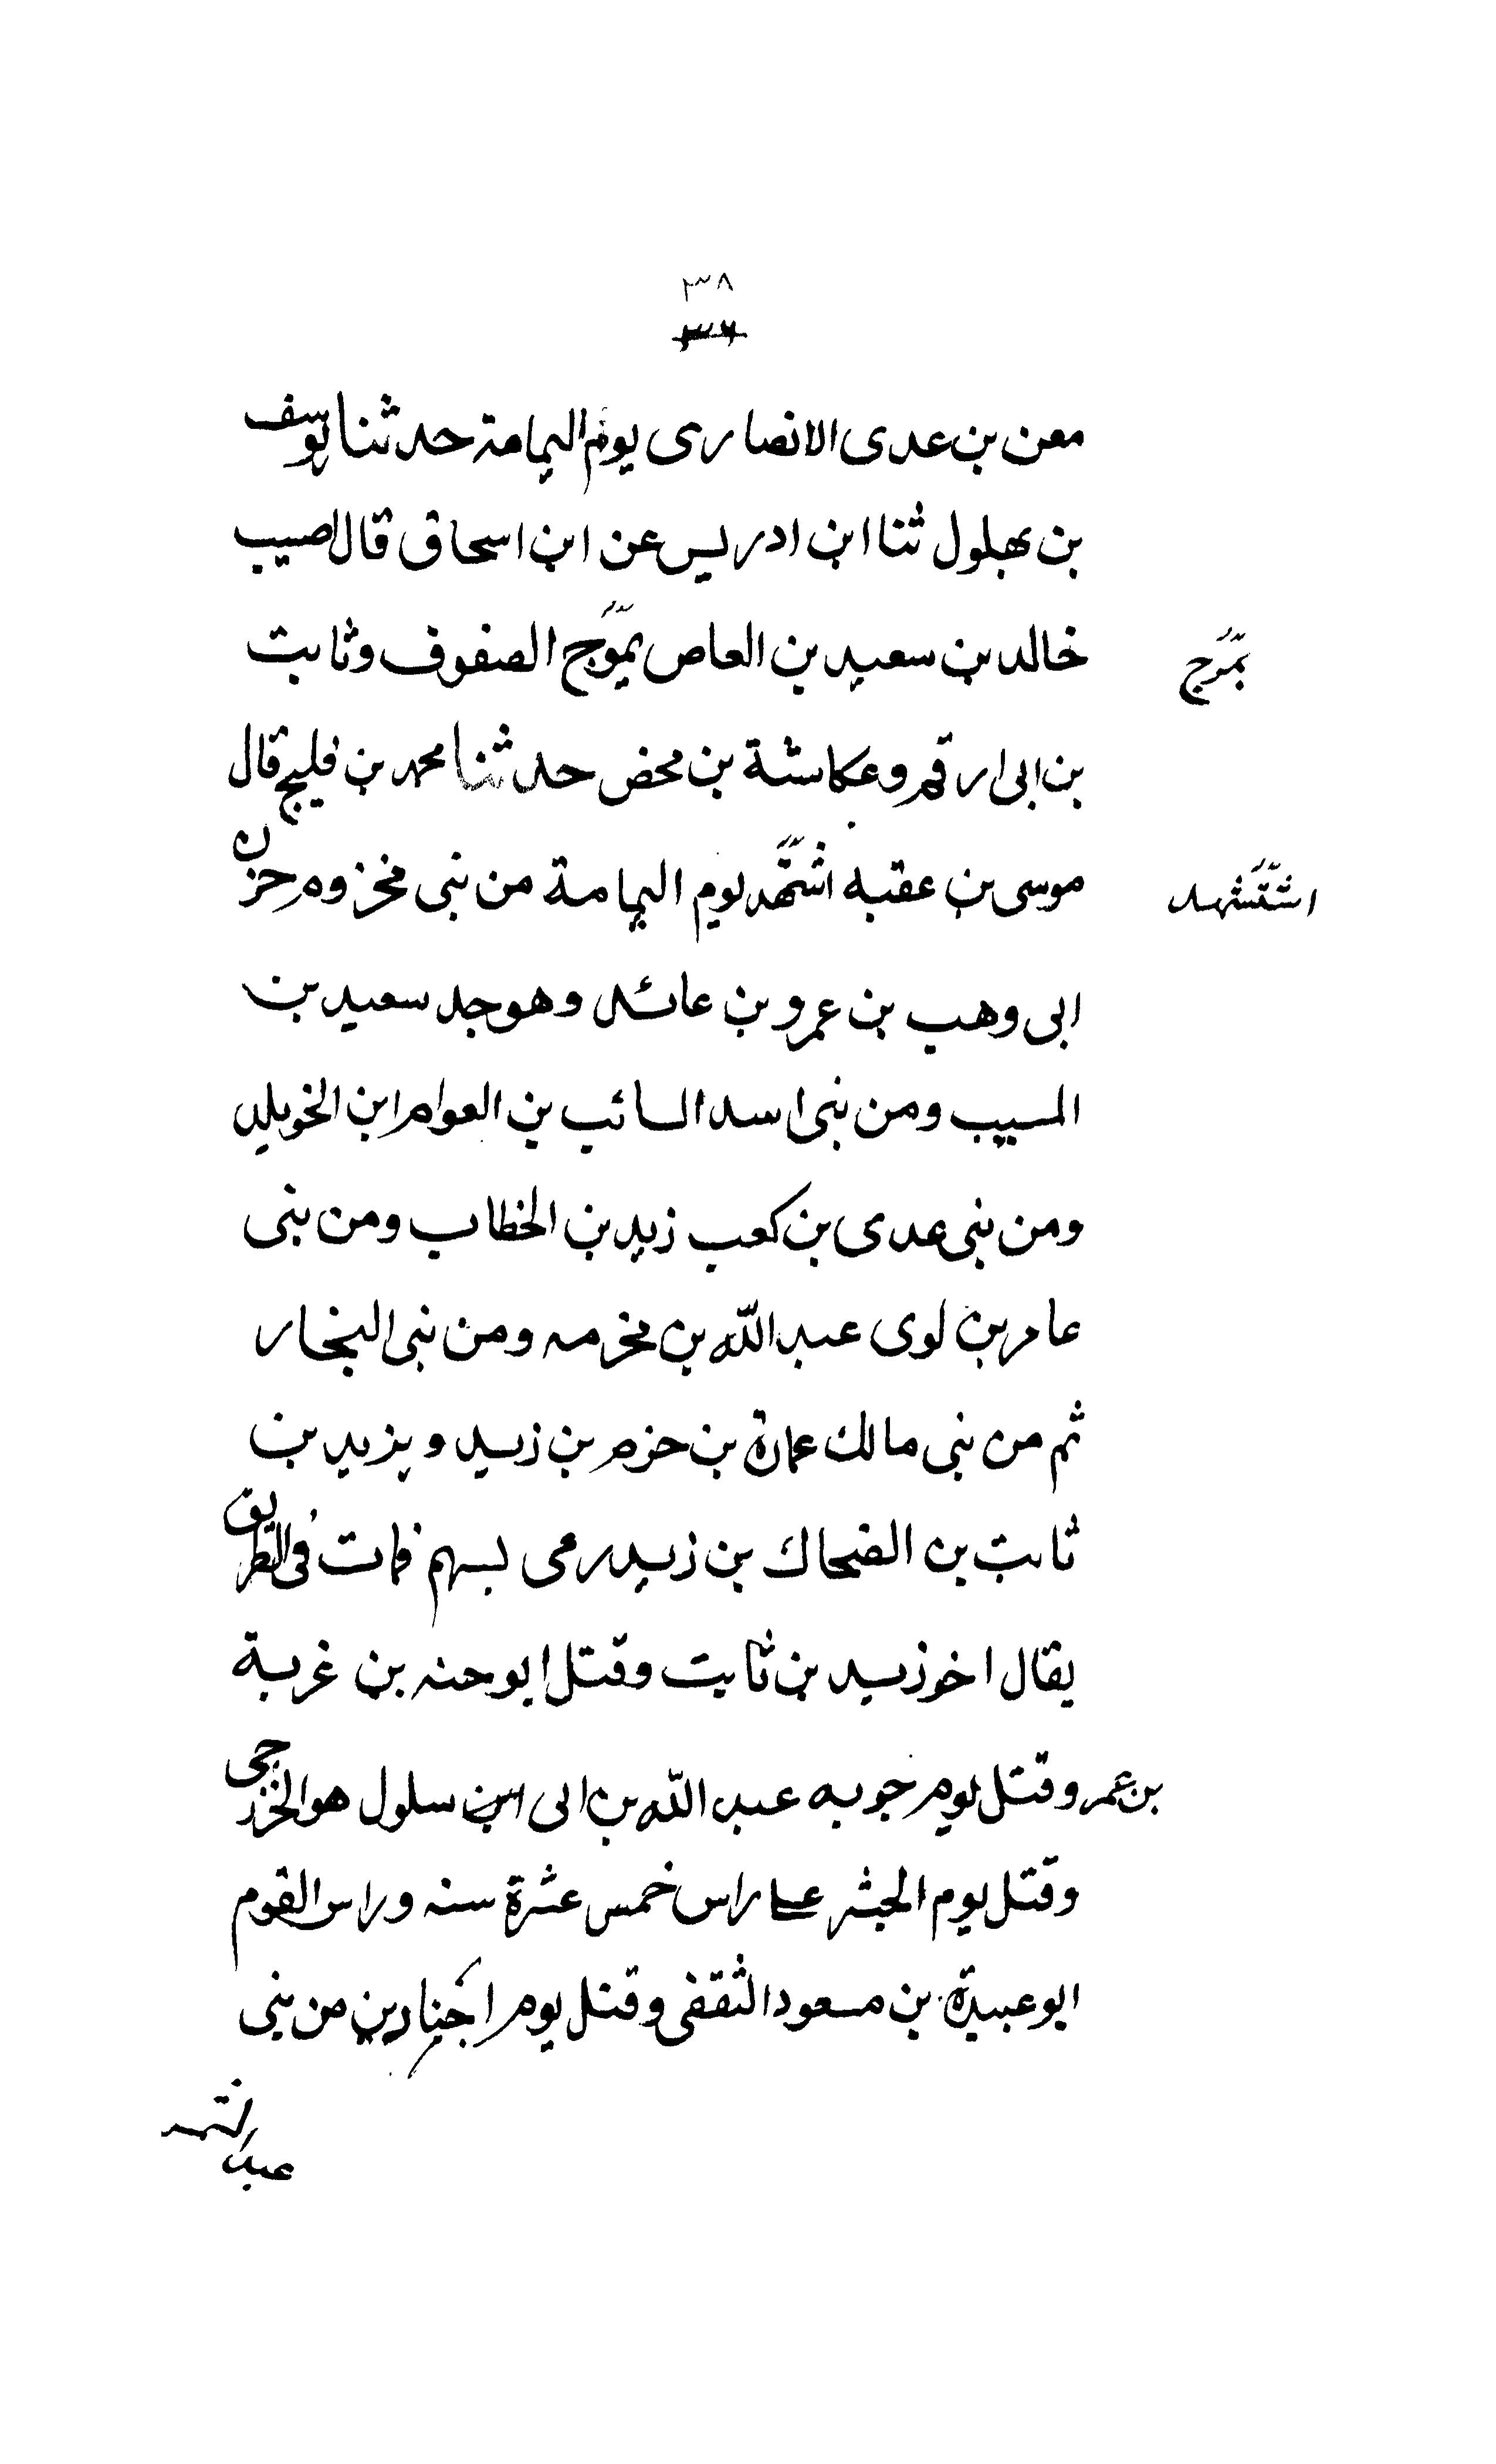 ٣٨
٣٧
معن بن عدى الانصارى يوم اليمامة حدثنا يوسف
بن بهلول ثنا ابن ادريس عن ابن اسحاق قال اصيب
خالد بن سعيد بن العاص بمَرّج الصفوف وثابت
بمَرّج
بن ابى ارقم وعكاشة بن محض حدثنا محمد بن فليح قال
موسى بن عقبه اشتهد يوم اليمامة من بنى مخزوم حزن
استشهد
ابى وهب بن عمرو بن عائد وهو جد سعيد بن
المسيب ومن بنى اسد السائب بن العوام ابن الخويلد
ومن بنى عدى بن كعب زيد بن الخطاب ومن بنى
عامر بن لوى عبد الله بن مخرمه ومن بنى النجار
ثم من بنى مالك عمارة بن حزم بن زيد ويزيد بن
ثابت بن الضحاك بن زيد رمى بسهم فمات فى الطريق
يقال اخو زيد بن ثابت وقتل ابو حنه بن غربة
بن عمر وقتل يوم جويه عبد الله بن ابى ابن سلول هو الخزرجى
وقتل يوم الجثر على راس خمس عشرة سنه وراس القوم
ابو عبيدة بن مسعود الثقفى وقتل يوم اجنادين من بنى
عبد شمس